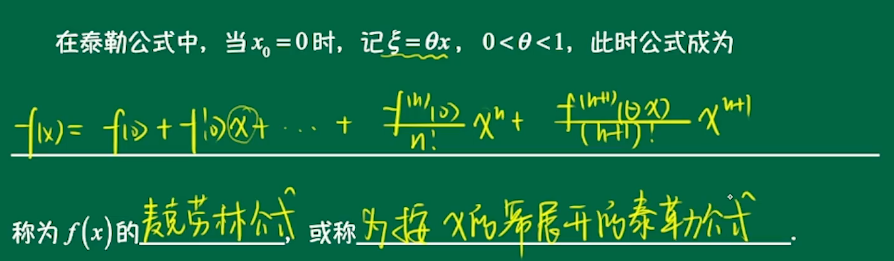 在泰勒公式中，当 x₀ = 0 时，记 ξ = θx，0 < θ < 1，此时公式成为
f(x) = f(0) + f'(0)x + ⋯ + f⁽ⁿ⁾(0)/n! xⁿ + f⁽ⁿ⁺¹⁾(θx)/(n+1)! xⁿ⁺¹
称为 f(x) 的麦克劳林公式，或称为按 x 的幂展开的泰勒公式.